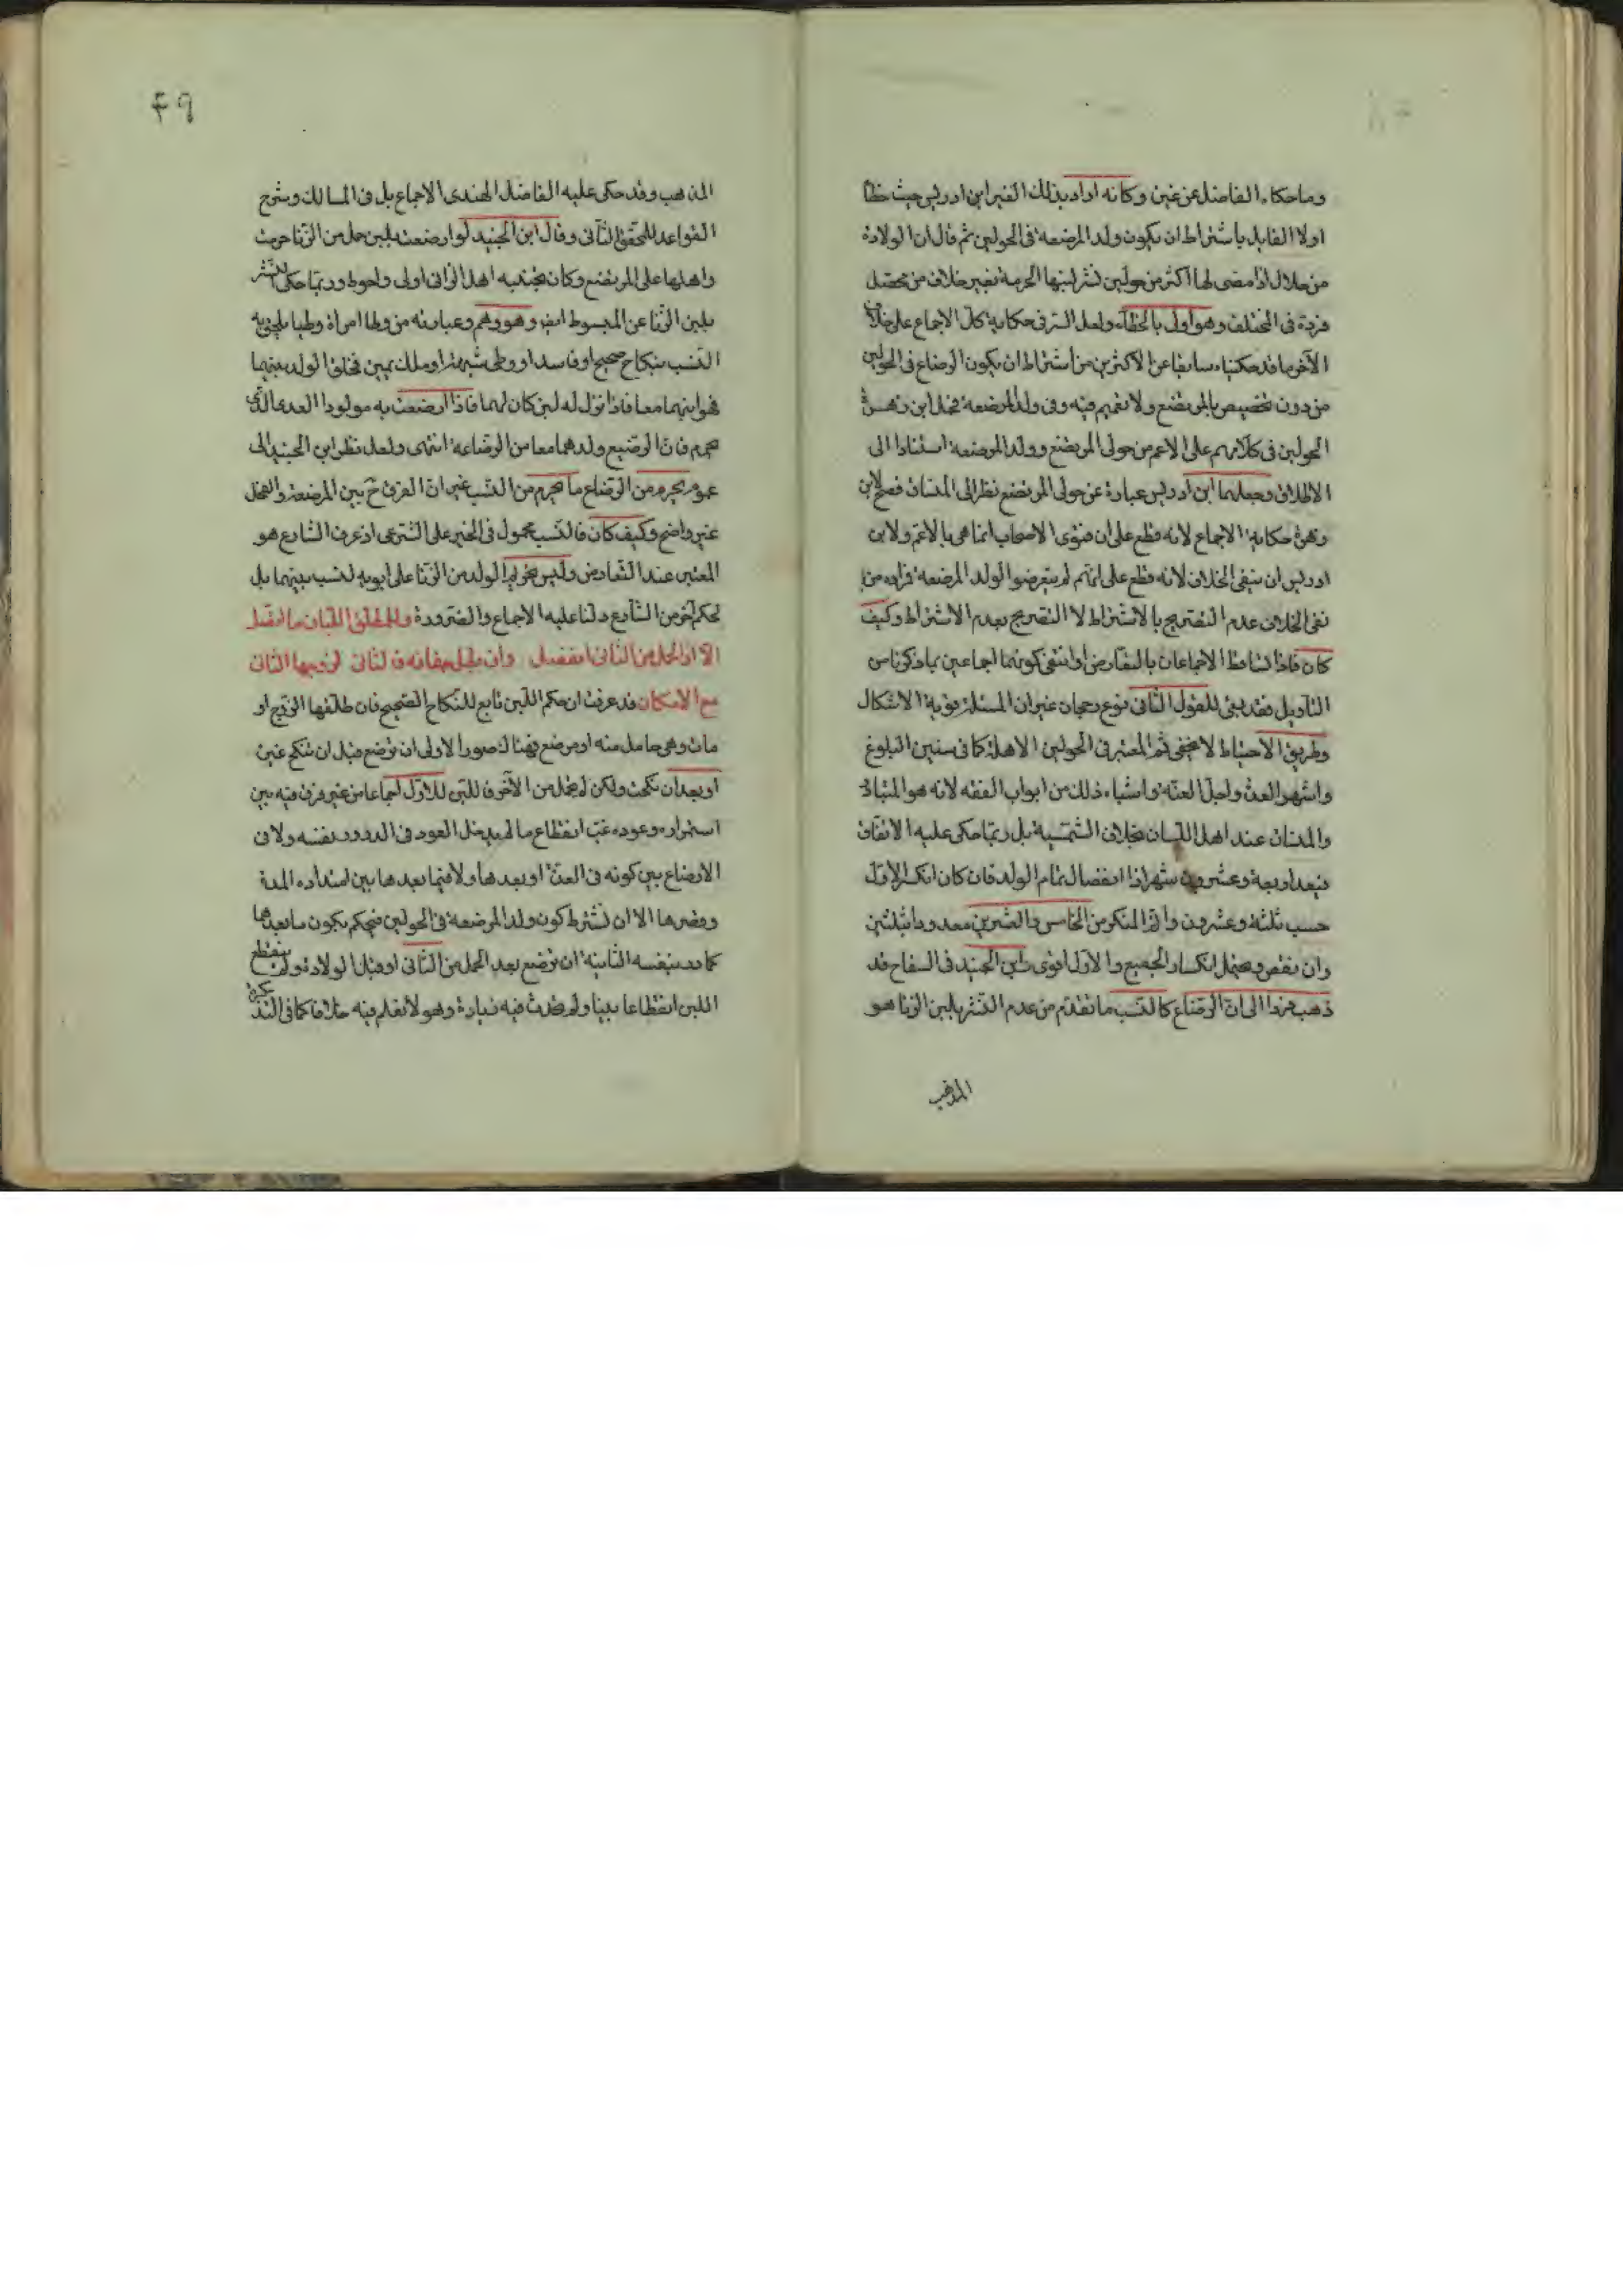 وما حكاه الفاضل عن غيره وكانه اراد بذلك الغير ابن ادريس حيث خطأ
اولا القايل باشتراط ان يكون ولد المرضعة في الحولين ثم قال ان الولادة
من حلال اذا مضى لها اكثر من حولين نشر لبنها الحرمة بغير خلاف من محصل
في المختلف وهو اولى بالخطاء ولعل السر في حكاية كل الاجماع على خلاف
الآخر ما قد حكيناه سابقا عن الاكثرين من اشتراط ان يكون الرضاع في الحولين
من دون تخصيص بالمرتضع ولا تعميم فيه وفي ولد المرضعة فحمل ابن زهرة
الحولين في كلامهم على الاعم من حولى المرتضع وولد المرضعة استنادا الى
الاطلاق وجعلهما ابن ادريس عبارة عن حولى المرتضع نظرا الى فصح لابن
زهرة حكاية الاجماع لانه قطع على ان فتوى الاصحاب انما هي بالاعم ولابن
ادريس ان ينفى الخلاف لانه قطع على انهم لم يتعرضوا لولد المرضعة فراده من
نفى الخلاف عدم التصريح بالاشتراط لا التصريح بعدم الاشتراط وكيف
كان فاذا تساقط الاجماعان بالتعارض او انتفى كونهما اجماعين بما ذكرنا من
التأويل فقد بقى للقول الثانى نوع رجحان غير ان المسئلة قوية الاشكال
وطريق الاحتياط لا يخفى ثم المعتبر في الحولين الاهلة كما في سنين البلوغ
واشهر العدة واجل العنة واشباه ذلك من ابواب الفقه لانه هو المتبادر
عند اهل اللسان بخلاف الشمسية بل ربما حكى عليه الاتفاق
اربعة وعشرون شهرا اذا انفصال تمام الولد فان كان انكسر الاول
حسب ثلثة وعشرون واتم المنكسر من الخامس والعشرين معدودا بثلثين
وان نقص ويحتمل انكسار الجميع والاول اقوى ابن الجنيد في السفاح قد
ذهب الى ان الرضاع كالنسب ما تقدم من عدم النشر بلبن الزنا هو
المذهب
٤٩
المذهب وقد حكى عليه الفاضل الهندى الاجماع بل في المسالك وشرح
القواعد للمحقق الثانى وقال ابن الجنيد لو ارضعت بلبن حمل من الزنا حرمت
واهلها على المرتضع وكان تجنبه اهل الزانى اولى واحوط وربما حكى النشر
بلبن الزنا عن المبسوط ايض وهو وهم وعبارته من وطأ امراة وطيا يلحق به
النسب بنكاح صحيح او فاسد او وطى شبهة او ملك يمين فخلق الولد بينهما
فهو ابنهما معا فاذا نزل له لبن كان لهما فاذا ارضعت به مولودا العدد الذى
يحرم فان الرضيع ولدهما معا من الرضاعة انتهى ولعل نظر ابن الجنيد الى
عموم يحرم من الرضاع ما يحرم من النسب غير ان الفرق ح بين المرضعة والفحل
غير واضح وكيف كان فالنسب محمول في الخبر على الشرعى اذ عرف الشارع هو
المعتبر عند التعارض وليس تحريم الولد من الزنا على ابويه لنسب بينهما بل
لحكم آخر من الشارع دلنا عليه الاجماع والضرورة وللمطلق اللبان ما اتصل
الا اذا الحمل من الثانى انفصل وان يطل جفافه فالثانى لزوجها الثانى
مع الامكان قد عرفت ان حكم اللبن تابع للنكاح الصحيح فان طلقها الزوج او
مات وهى حامل منه او مرضع فهنا صور الاولى ان ترضع قبل ان تنكح غيره
او بعد ان نكحت ولكن لم تحمل من الآخر فاللبن للاول اجماعا من غير فرق فيه بين
استمراره وعوده غب انقطاع ما لم يدخل العود في الدرور بنفسه ولا في
الارضاع بين كونه في العدة او بعدها ولا فيما بعدها بين امتداده المدة
وقصرها الا ان نشترط كون ولد المرضعة في الحولين فيحكم بكون ما بعدهما
كما در بنفسه الثانية ان ترضع بعد الحمل من الثانى او قبل الولادة ولم ينقطع
اللبن انقطاعا بينا ولم تحدث فيه زيادة وهو لا نعلم فيه خلافا كما في التذكرة